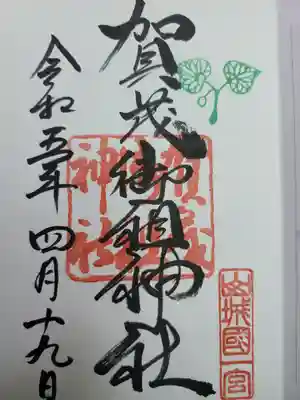 山城國一宮
賀茂御祖神社
令和五年四月十九日